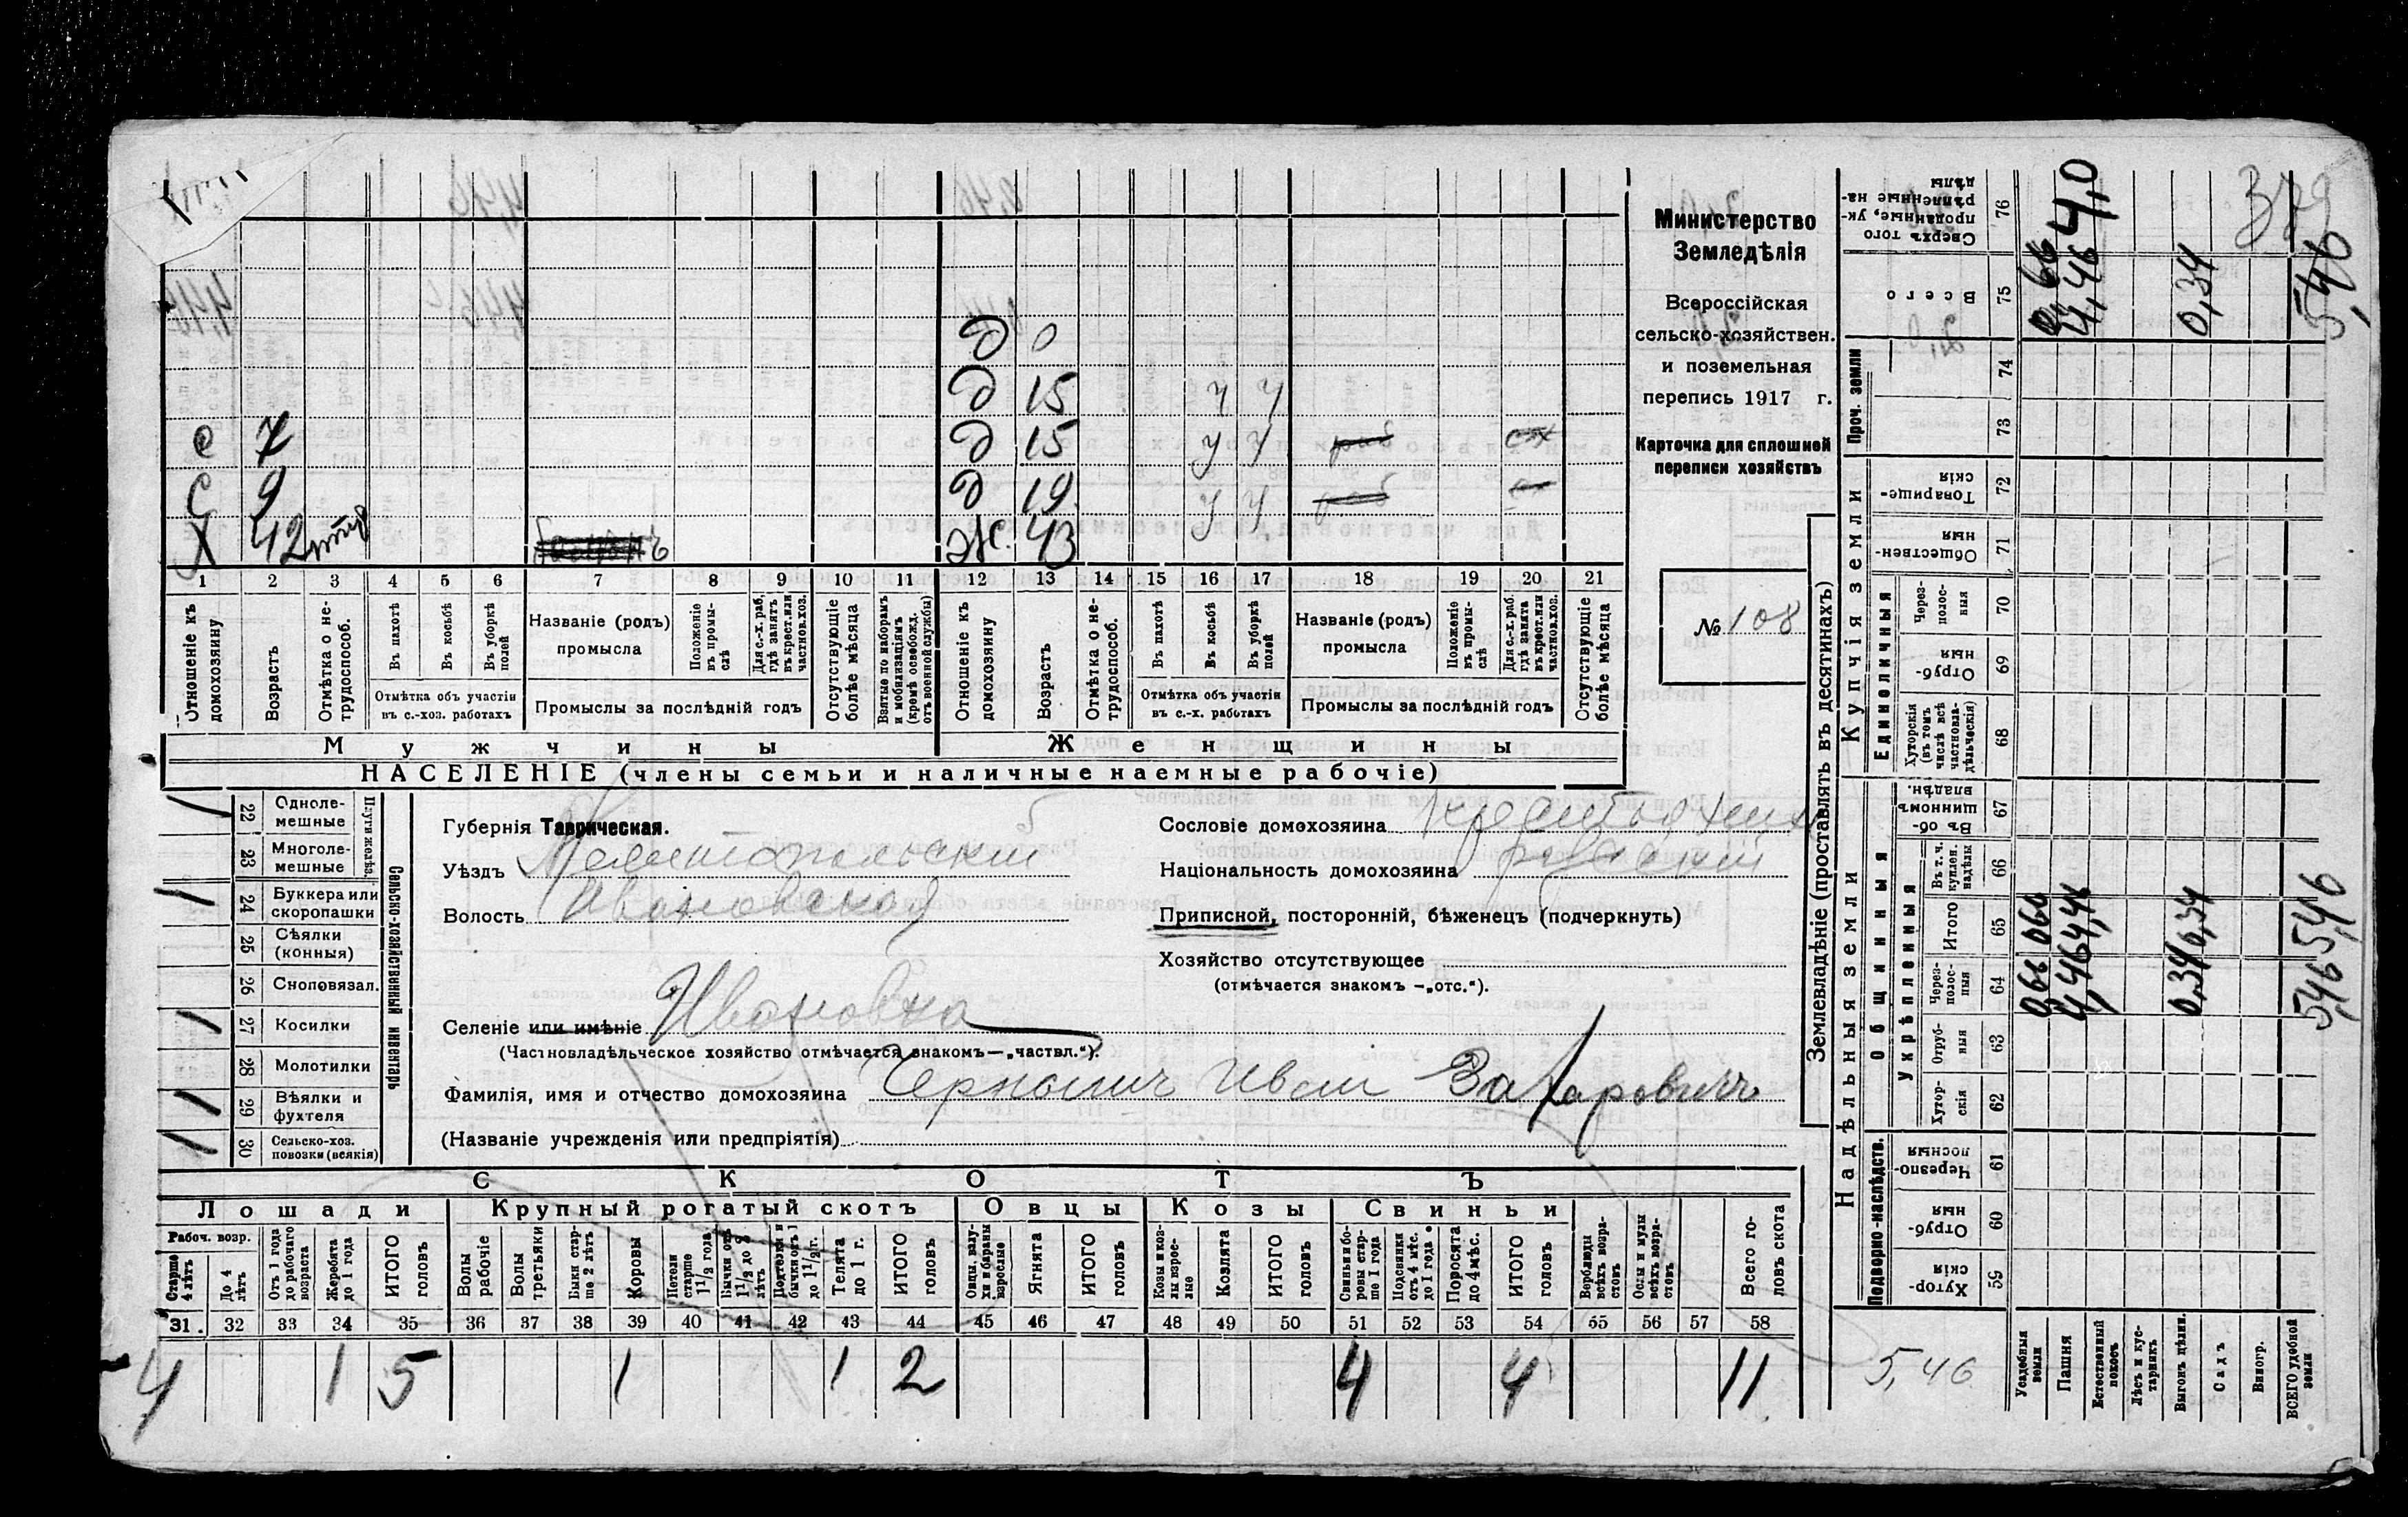 Министерство
Земледѣлія
Всероссійская
сельско-хозяйствен.
и поземельная
перепись 1917 г.
Карточка для сплошной
переписи хозяйствъ
№ 108
д 0
д 15 у у
с 7 д 15 у у раб сх
с 9 д 19 у у раб сх
Х 42 Ж. 43
1 2 3 4 5 6 7 8 9 10 11 12 13 14 15 16 17 18 19 20 21
Отношеніе къ домохозяину
Возрастъ
Отмѣтка о нетрудоспособ.
Въ пахотѣ
Въ косьбѣ
Въ уборкѣ полей
Отмѣтка объ участіи въ с.-хоз. работахъ
Названіе (родъ) промысла
Положеніе въ промыслѣ
Для с.-х. раб, гдѣ занятъ въ крест. или частнов. хоз.
Промыслы за послѣдній годъ
Отсутствующіе болѣе мѣсяца
Взятые по наборамъ и мобилизаціямъ (кромѣ освобожд. отъ военной службы)
Отношеніе къ домохозяину
Возрастъ
Отмѣтка о нетрудоспособ.
Въ пахотѣ
Въ косьбѣ
Въ уборкѣ полей
Отмѣтка объ участіи въ с.-х. работахъ
Названіе (родъ) промысла
Положеніе въ промыслѣ
Для с.-х. раб. гдѣ занята въ крест. или частнов. хоз.
Промыслы за послѣдній годъ
Отсутствующіе болѣе мѣсяца
Мужчины Женщины
НАСЕЛЕНІЕ (члены семьи и наличные наемные рабочіе)
Сельско-хозяйственный инвентарь
Плуги желѣз.
22 Однолемешные
23 Многолемешные
24 Буккера или скоропашки
25 Сѣялки (конныя)
26 Сноповязал.
27 Косилки
28 Молотилки
29 Вѣялки и фухтеля
30 Сельско-хоз. повозки (всякія)
Губернія Таврическая.
Уѣздъ Мелитопольскій
Волость Ивановская
Селеніе или имѣніе Ивановка
(Частновладѣльческое хозяйство отмѣчается знакомъ—„частвл.“).
Фамилія, имя и отчество домохозяина Иван Захарович
(Названіе учрежденія или предпріятія)
Сословіе домохозяина
Національность домохозяина русскій
Приписной, посторонній, бѣженецъ (подчеркнуть)
Хозяйство отсутствующее
(отмѣчается знакомъ —„отс.“).
СКОТЪ
Лошади Крупный рогатый скотъ Овцы Козы Свиньи
Рабоч. возр.
Старше 4 лѣтъ
До 4 лѣтъ
Отъ 1 года до рабочаго возраста
Жеребята до 1 года
ИТОГО головъ
Волы рабочіе
Волы третьяки
Быки старше 2 лѣтъ
Коровы
Нетели старше 1 1/2 года
Бычки отъ 1 1/2 до 2 лѣтъ
Подтелки и бычки отъ 1 до 1 1/2 г.
Телята до 1 г.
ИТОГО головъ
Овцы, валухи и бараны взрослые
Ягнята
ИТОГО головъ
Козы и козлы взрослые
Козлята
ИТОГО головъ
Свиньи и боровы старше 1 года
Подсвинки отъ 4 мѣс. до 1 года
Поросята до 4 мѣс.
ИТОГО головъ
Верблюды всѣхъ возрастовъ
Ослы и мулы всѣхъ возрастовъ
Всего головъ скота
31 32 33 34 35 36 37 38 39 40 41 42 43 44 45 46 47 48 49 50 51 52 53 54 55 56 57 58
4 1 5 1 1 2 4 4 11
Землевладѣніе (проставлять въ десятинахъ)
Надѣльныя земли
Купчія земли
Проч. земли
Подворно-наслѣдств.
Общинныя
Укрѣпленныя
Единоличныя
Сверхъ того проданные, укрѣпленные надѣлы 76
Всего 75
74
73
Товарищескія 72
Общественныя 71
Чрезполосныя 70
Отрубныя 69
Хуторскія (въ томъ числѣ всѣ частновладѣльческія) 68
Въ общинномъ владѣн. 67
Въ т. ч. куплен. надѣлы 66
Итого 65
Чрезполосныя 64
Отрубныя 63
Хуторскія 62
Черезполосныя 61
Отрубныя 60
Хуторскія 59
Усадебныя земли 0,66 0,66 0,66
Пашня 4,46 4,46 4,46 4,0
Естественный покосъ
Лѣсъ и кустарникъ
Выгонъ цѣлин. 0,34 0,34 0,34
Садъ
Виногр.
ВСЕГО удобной земли 5,46 5,46 5,46
5,46